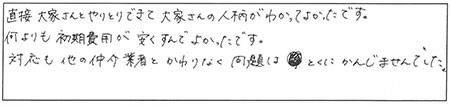 直接大家さんとやりとりできて大家さんの人柄がわかってよかったです。
何よりも初期費用が安くすんでよかったです。
対応も他の仲介業者とかわりなく問題はとくにかんじませんでした。